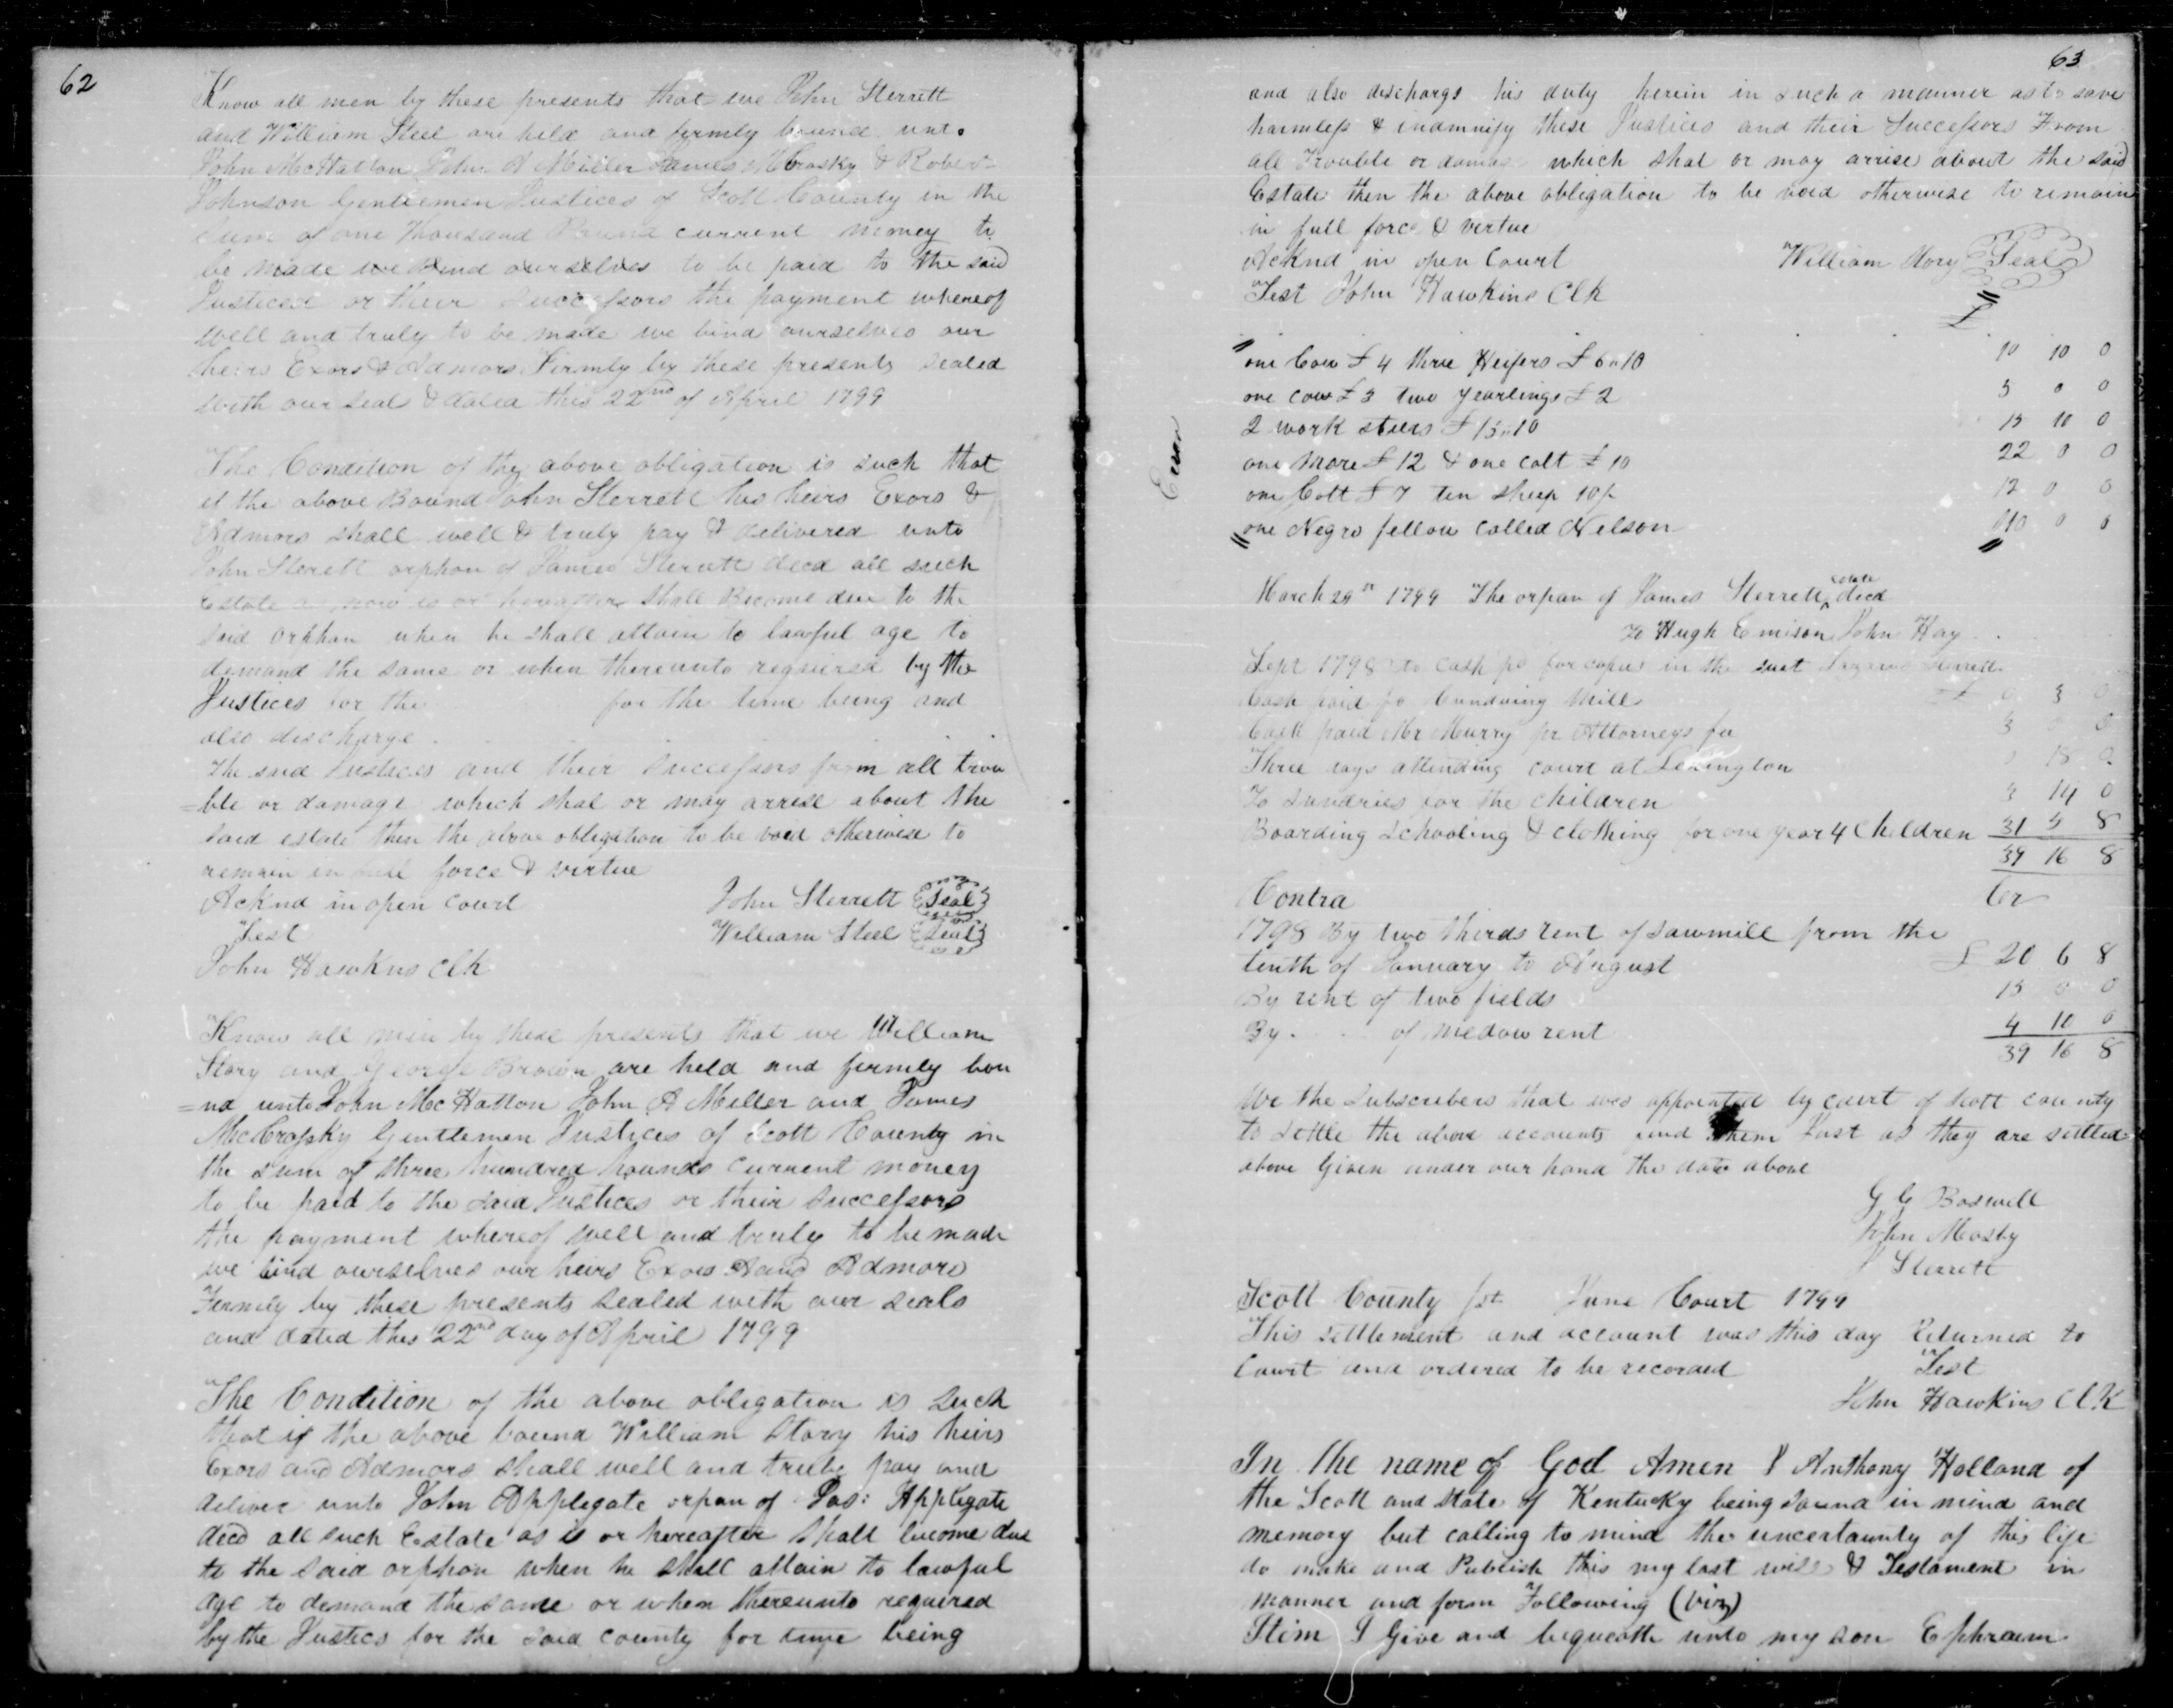 62
Know all men by these presents that we John Sterrett
and William Steel are held and firmly bound unto
John McHatton John A Miller James McCrosky & Robert
Johnson Gentlemen Justices of Scott County in the
sum of one thousand Pound current money to
be made we Bind ourselves to be paid to the said
Justices or their Successors the payment whereof
well and truly to be made we bind ourselves our
heirs Exors & Admors Firmly by these presents sealed
with our seals & dated this 22nd of April 1799
The Condition of the above obligation is such that
if the above Bound John Sterrett his heirs Exors &
Admors shall well & truly pay & delivered unto
John Sterett orphan of James Sterrett decd all such
Estate as now is or hereafter shall Become due to the
said orphan when he shall attain to lawful age to
demand the same or when thereunto required by the
Justices for the for the time being and
also discharge
the said Justices and their successors from all trou
=ble or damage which shal or may arrise about the
said estate then the above obligation to be void otherwise to
remain in full force & virtue
Acknd in open court John Sterrett Seal
Test William Steel Seal
John Hawkins Clk
Know all men by these presents that we William
Story and George Brown are held and firmly bou
=nd unto John McHatton John A Miller and James
McCrosky Gentlemen Justices of Scott County in
the sum of three hundred pounds current money
to be paid to the said Justices or their successors
the payment whereof well and truly to be made
we bind ourselves our heirs Exors And Admors
Firmly by these presents sealed with our seals
and dated this 22nd day of April 1799
The Condition of the above obligation is such
that if the above bound William Story his heirs
Exors and Admors shall well and truly pay and
deliver unto John Applegate orpan of Jas: Applegate
decd all such Estate as is or hereafter shall become due
to the said orphan when he shall attain to lawful
age to demand the same or when thereunto required
by the Justics for the said county for time being
63
and also discharge his duty herein in such a manner as to save
harmless & indemnify these Justices and their Successors From
all Trouble or damage which shal or may arrise about the said
Estate then the above obligation to be void otherwise to remain
in full force & virtue
Acknd in open Court William Story Seal
Test John Hawkins Clk
£
one Cow £4 three Heifers £6"10 10 10 0
one cow £3 two yearlings £2 5 0 0
2 work steers £15"10 15 10 0
one mare £12 & one colt £10 22 0 0
one Colt £7 ten sheep 10/- 12 0 0
one Negro fellow called Nelson 110 0 0
Error
March 29th 1799 The orpan of James Sterrett decd
To Hugh Emison John Hay
Sept 1798 to cash pd for copies in the suit Lazarus Sterrett
Cash paid fo Cundwing Mill £ 0 3 0
Cash paid Mr Murry pr Attorneys fee 3 0 0
Three days attending court at Lexington 0 18 0
To sundries for the children 3 14 0
Boarding schooling & clothing for one year 4 Children 31 5 8
39 16 8
Contra Cr
1798 By two thirds rent of sawmill from the
tenth of January to August £ 20 6 8
By rent of two fields 15 0 0
By of medow rent 4 10 0
39 16 8
We the Subscribers that was appointed by court of Scott county
to settle the above accounts find them Just as they are settled
above Given under our hand the date above
G G Boswell
John Mosby
J Sterrett
Scott County Sct June Court 1799
This settlement and account was this day Returned to
Court and ordered to be recorded Test
John Hawkins ClK
In the name of God Amen I Anthony Holland of
the Scott and state of Kentucky being sound in mind and
memory but calling to mind the uncertaunty of this life
do make and Publish this my last will & Testament in
manner and form Following (viz)
Itim I Give and bequeath unto my son Ephraim